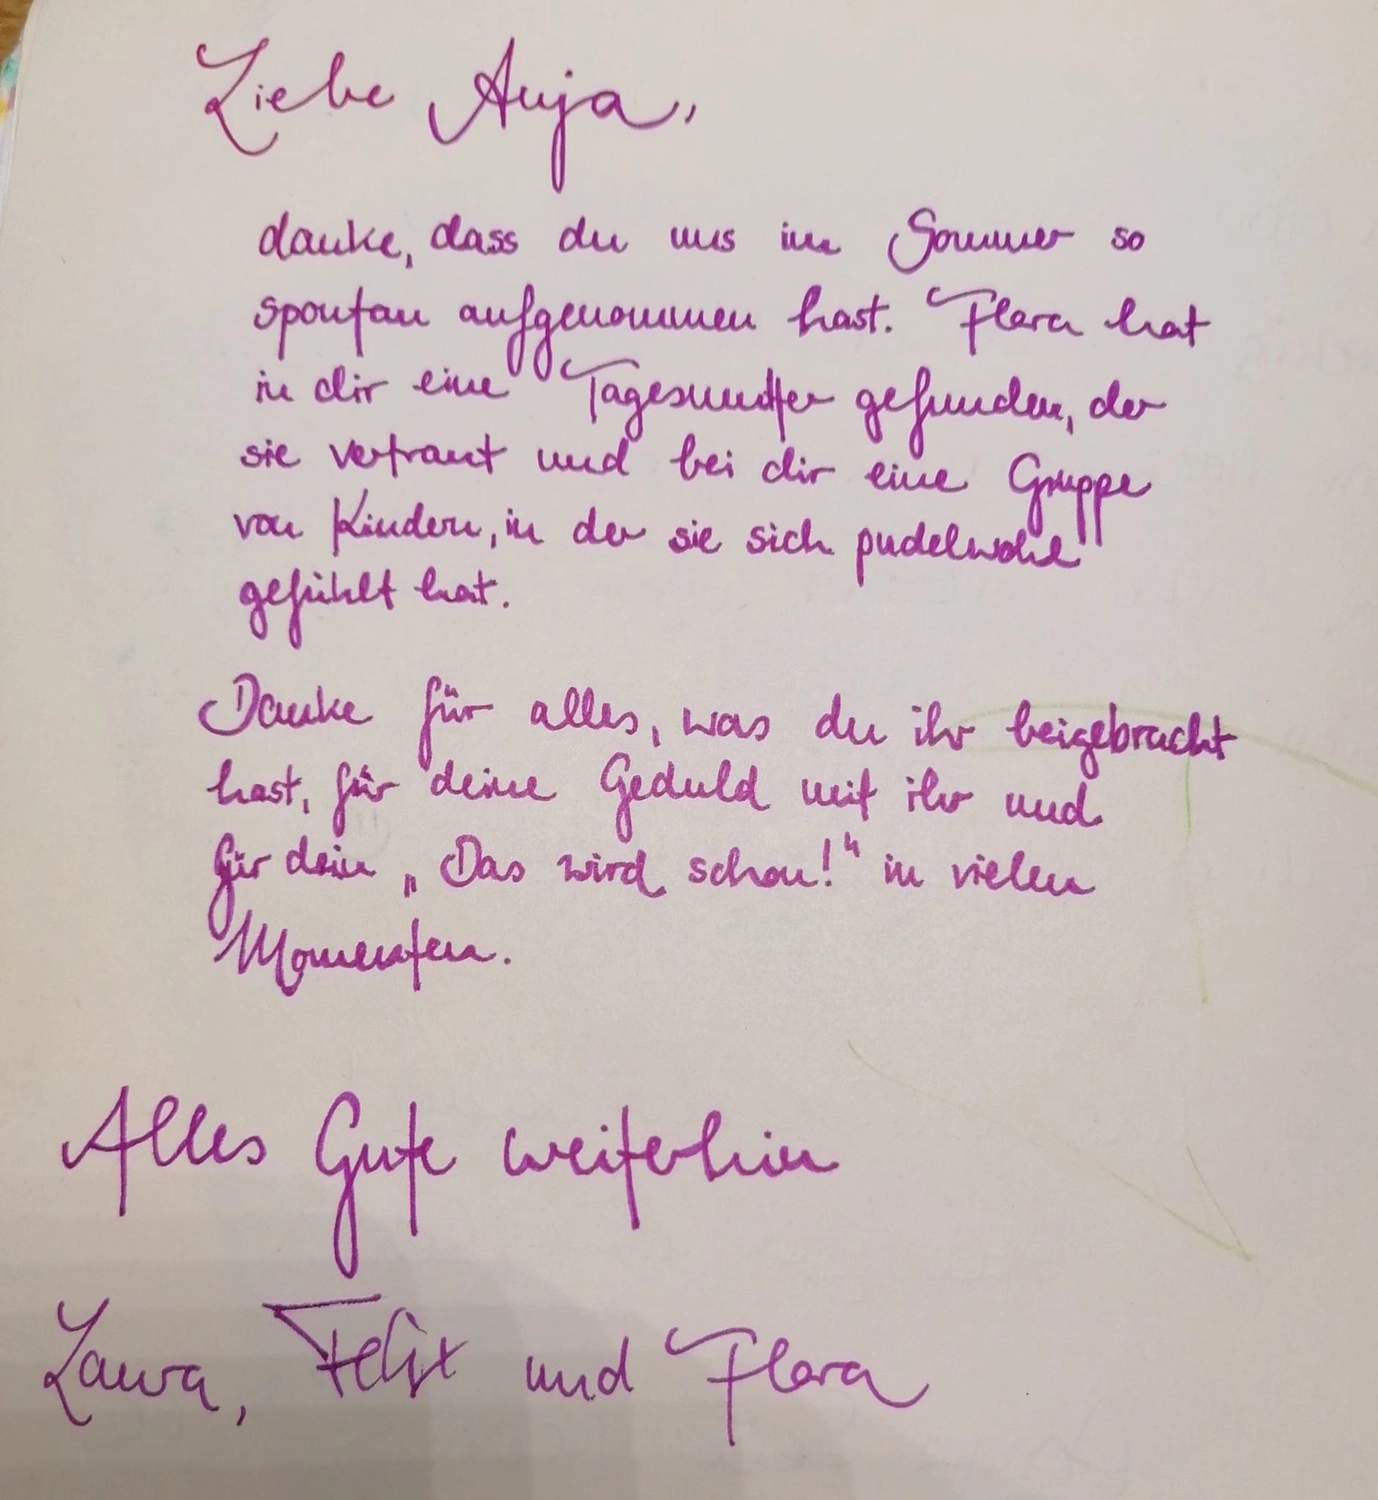 Liebe Anja,
danke, dass du uns im Sommer so
spontan aufgenommen hast. Flora hat
in dir eine Tagesmutter gefunden, der
sie vertraut und bei dir eine Gruppe
von Kindern, in der sie sich pudelwohl
gefühlt hat.
Danke für alles, was du ihr beigebracht
hast, für deine Geduld mit ihr und
für dein „Das wird schon!“ in vielen
Momenten.
Alles Gute weiterhin
Laura, Felix und Flora